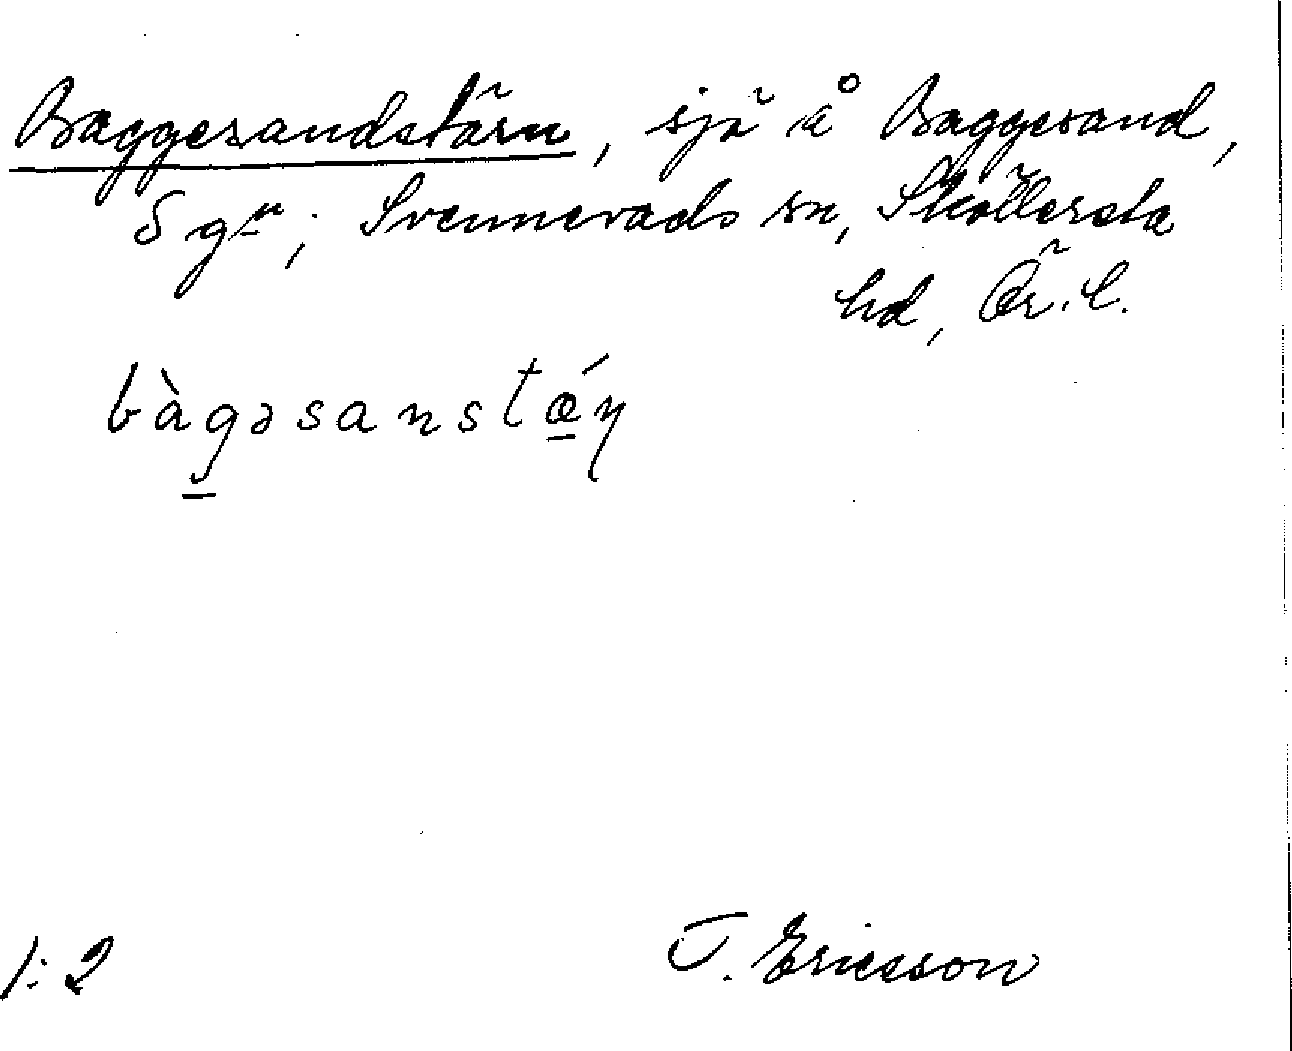 Baggesandstärn, sjö å Baggesand,
S gn; Svennevads sn, Sköllersta
hd, Ör. l.
bàgəsanstǽn
1:2
T. Ericsson